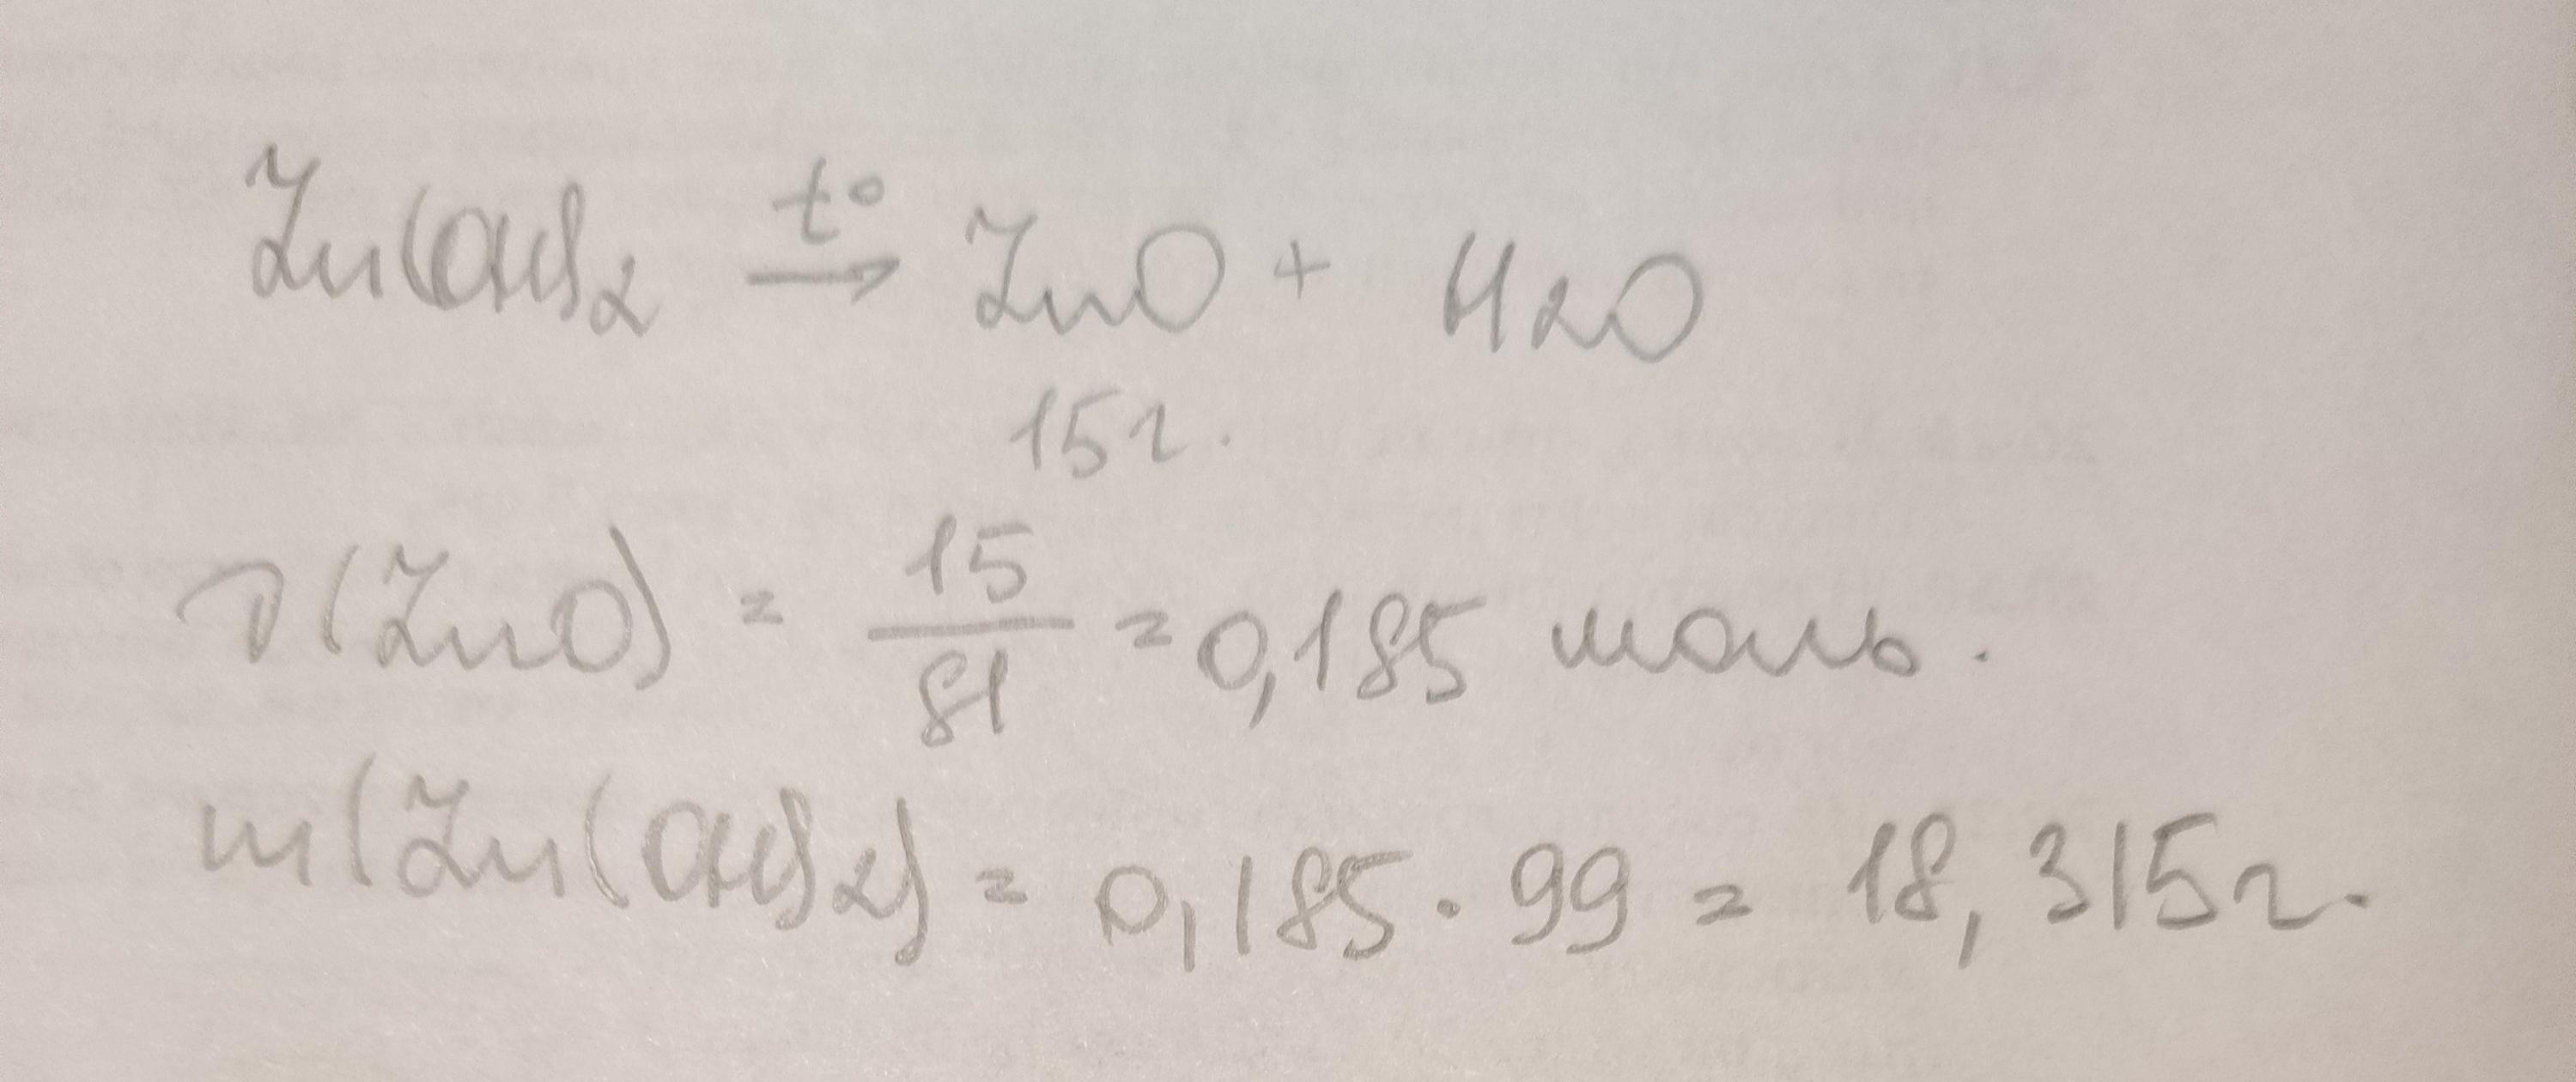 Zn(OH)₂ t° → ZnO + H₂O
15г.
ν(ZnO) = 15/81 = 0,185 моль.
m(Zn(OH)₂) = 0,185 · 99 = 18,315г.